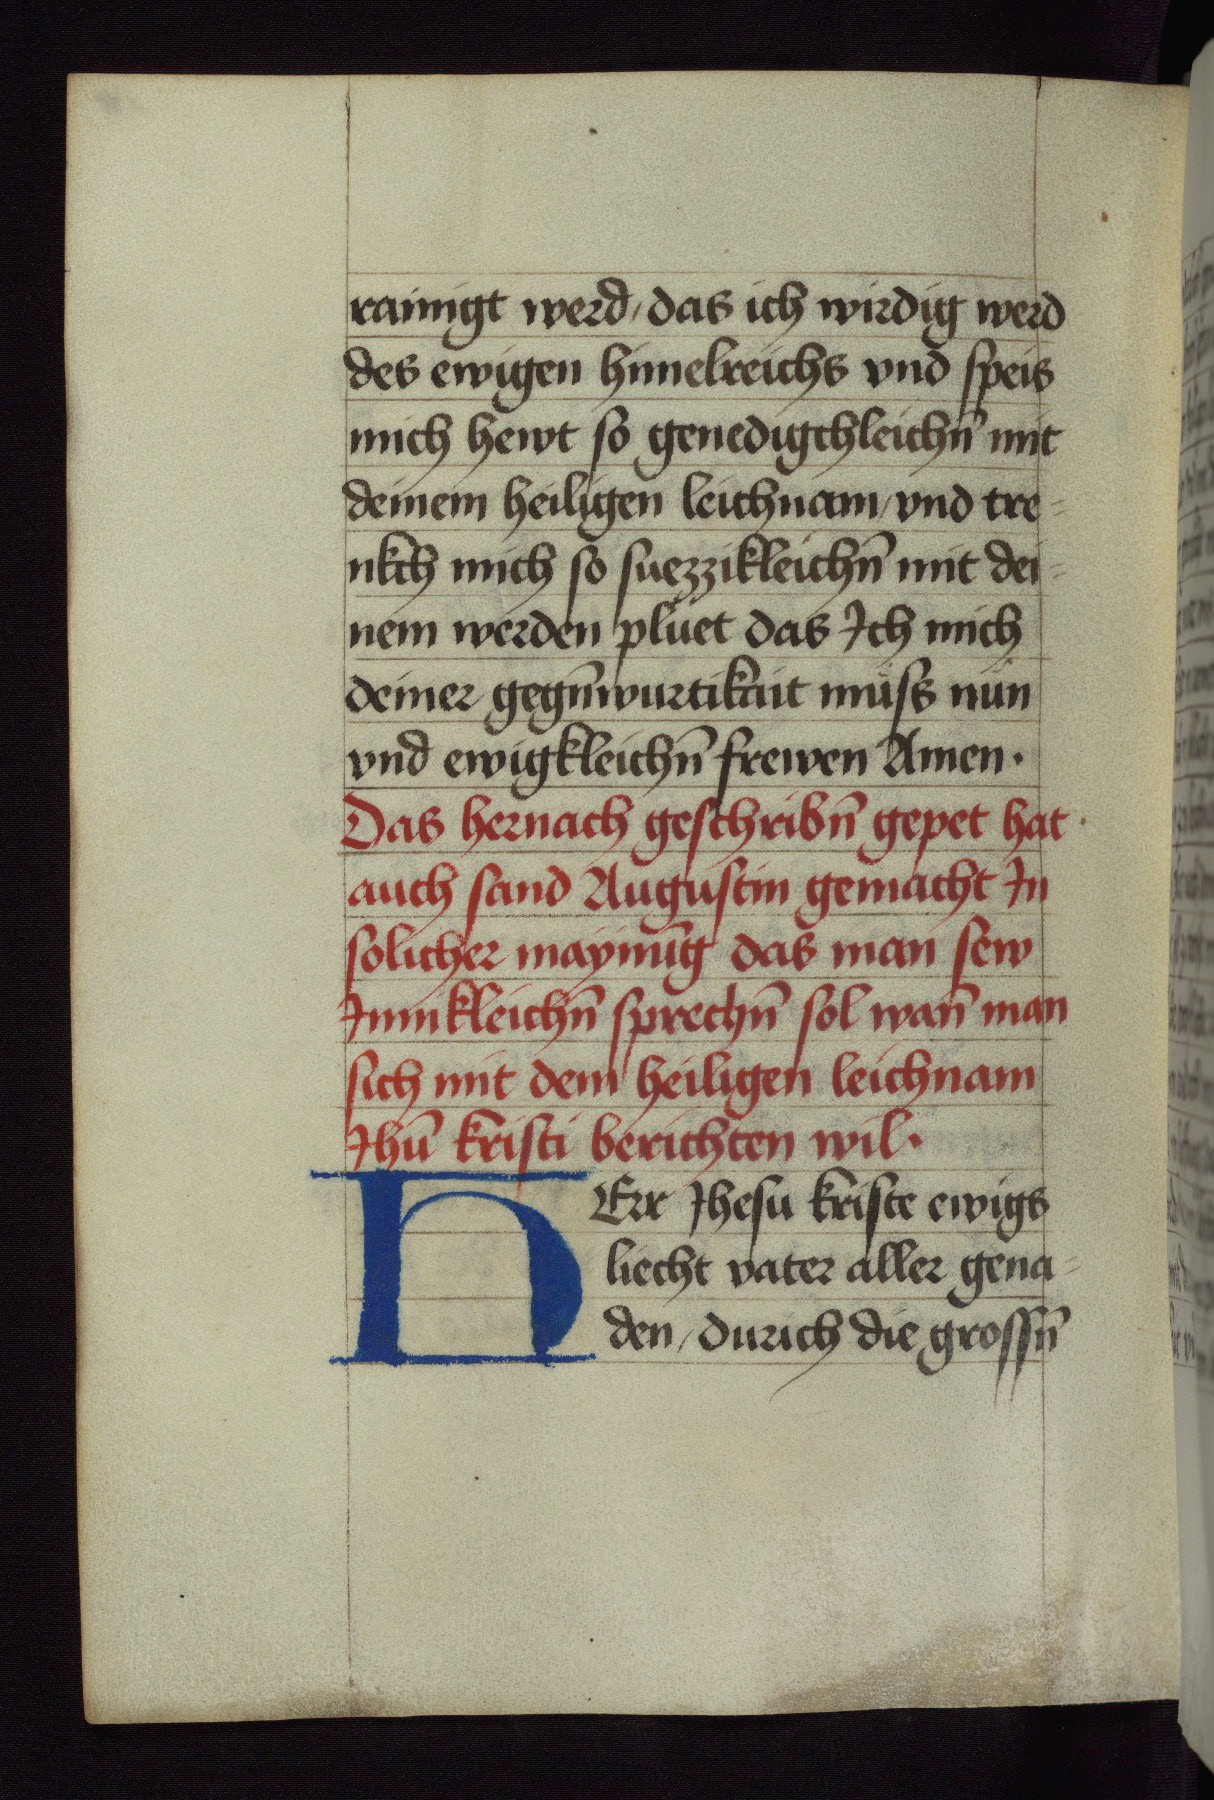 rainigt werd, das ich wirdig werd
des ewigen himelreichs vnd speis
mich hewt so genedigchleichn̄ mit
deinem heiligen leichnam, vnd tre-
nkch mich so suezzikleichn̄ mit dei-
nem werden plüet das Ich mich
deiner gegn̄wurtikait müss nün
vnd ewigkleichn̄ frewen Amen.
Das hernach geschribn̄ gepet hat
auch sand Augustin gemacht In
solicher maynūg das man sew
Innikleichn̄ sprechn̄ sol wan̄ man
sich mit dem heiligen leichnam
Jhū kristi berichten wil.
HErr Jhesu kriste ewigs
liecht vater aller gena-
den, durich die grossn̄